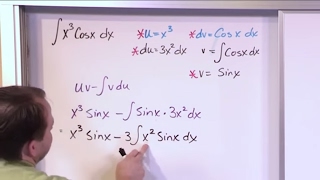 ∫x³Cosx dx
*u=x³ *dv=Cosx dx
*du=3x²dx v=∫Cosx dx
*v= Sinx
uv-∫vdu
x³ Sinx - ∫Sinx · 3x²dx
= x³ Sinx - 3∫x² Sinx dx